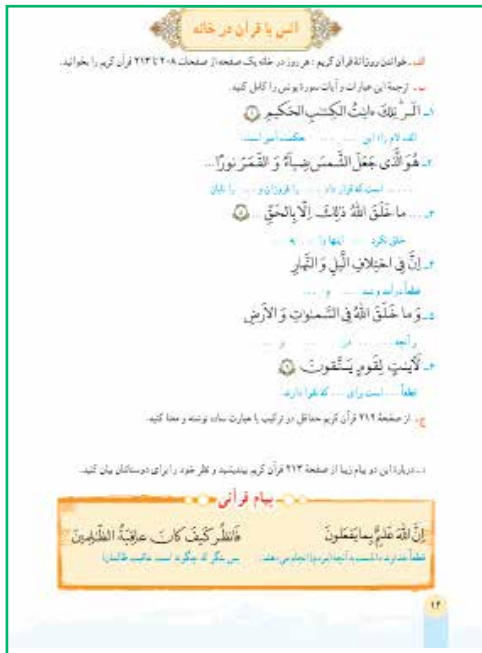 انس با قرآن در خانه
الف ـ خواندن روزانهٔ قرآن کریم : هر روز در خانه یک صفحه از صفحات ۲۰۸ تا ۲۱۳ قرآن کریم را بخوانید.
ب ـ ترجمهٔ این عبارات و آیات سورهٔ یونس را کامل کنید.
۱ـ الٓرٰ تِلْكَ ءایٰتُ الْکِتٰبِ الْحَکیمِ ۱
الف لام را؛ این ..... ..... حکمت آمیز است.
۲ـ هُوَ الَّذی جَعَلَ الشَّمْسَ ضِیاءً وَ الْقَمَرَ نورًا...
..... است که قرار داد ..... را فروزان و ..... را تابان
۳ـ ... ما خَلَقَ اللّٰهُ ذٰلِكَ اِلّا بِالْحَقِّ ... ۵
خلق نکرد ..... اینها را ..... به .....
۴ـ اِنَّ فِی اخْتِلافِ الَّیْلِ وَ النَّهارِ
قطعاً در آمد و شد ..... و .....
۵ـ وَ ما خَلَقَ اللّٰهُ فِی السَّمٰوٰتِ وَ الْاَرْضِ
و آنچه ..... در ..... و .....
۶ـ لَاٰیٰتٍ لِقَوْمٍ یَتَّقونَ ۶
قطعاً ..... است برای ..... که تقوا دارند.
ج ـ از صفحهٔ ۲۱۲ قرآن کریم حداقل دو ترکیب یا عبارت ساده نوشته و معنا کنید.
د ـ دربارهٔ این دو پیام زیبا از صفحهٔ ۲۱۳ قرآن کریم بیندیشید و نظر خود را برای دوستانتان بیان کنید.
پیام قرآنی
اِنَّ اللّٰهَ عَلیمٌ بِما یَفْعَلونَ
قطعاً خداوند دانست به آنچه (مردم) انجام می‌دهند.
فَانْظُرْ کَیْفَ کانَ عاقِبَةُ الظّٰلِمینَ
پس بنگر که چگونه است عاقبت ظالمان!
۱۴